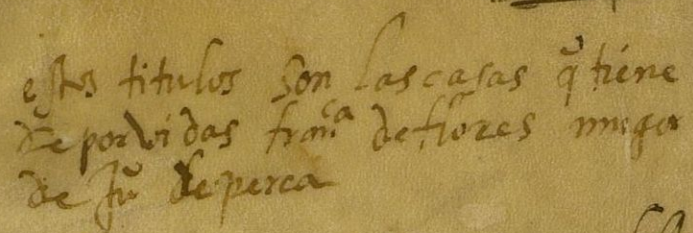 estos titulos son las casas q̃ tiene
de por vidas franca de flores muger
de Ju° de perea